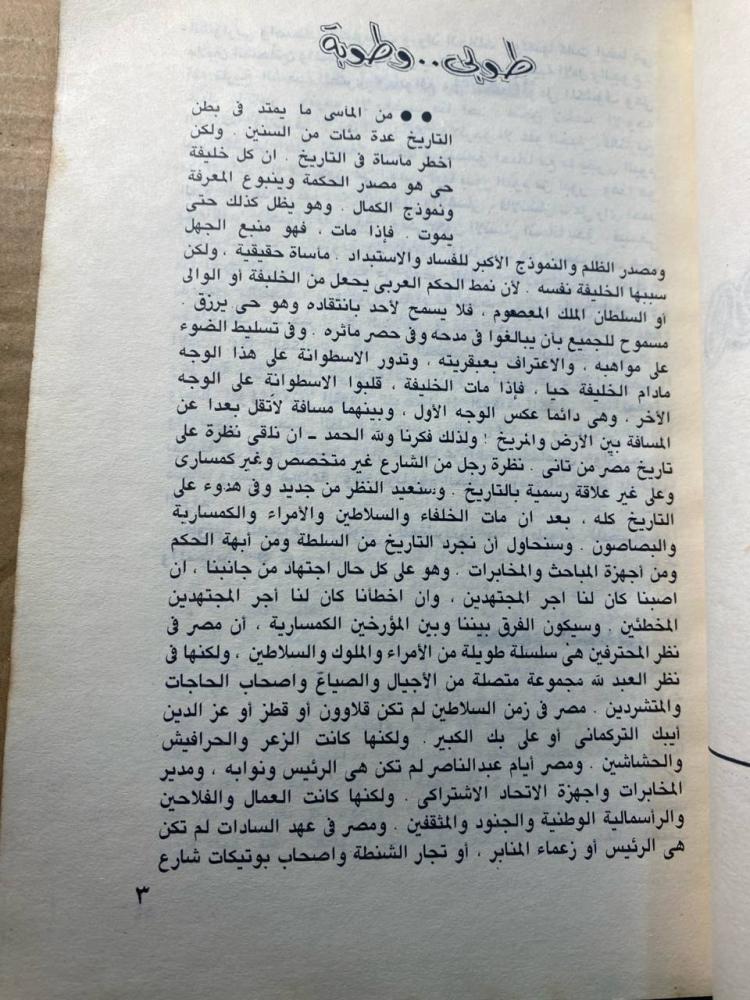 طوبى.. وطوبة
●● من المآسى ما يمتد فى بطن
التاريخ عدة مئات من السنين . ولكن
أخطر مأساة فى التاريخ . ان كل خليفة
حى هو مصدر الحكمة وينبوع المعرفة
ونموذج الكمال . وهو يظل كذلك حتى
يموت . فإذا مات ، فهو منبع الجهل
ومصدر الظلم والنموذج الأكبر للفساد والاستبداد . مأساة حقيقية ، ولكن
سببها الخليفة نفسه . لأن نمط الحكم العربى يجعل من الخليفة أو الوالى
أو السلطان الملك المعصوم ، فلا يسمح لأحد بانتقاده وهو حى يرزق .
مسموح للجميع بأن يبالغوا فى مدحه وفى حصر مآثره . وفى تسليط الضوء
على مواهبه ، والاعتراف بعبقريته ، وتدور الاسطوانة على هذا الوجه
مادام الخليفة حيا ، فإذا مات الخليفة ، قلبوا الاسطوانة على الوجه
الآخر ، وهى دائما عكس الوجه الأول ، وبينهما مسافة لاتقل بعدا عن
المسافة بين الأرض والمريخ ! ولذلك فكرنا ولله الحمد ـ ان نلقى نظرة على
تاريخ مصر من تانى . نظرة رجل من الشارع غير متخصص وغير كمسارى
وعلى غير علاقة رسمية بالتاريخ . وسنعيد النظر من جديد وفى هدوء على
التاريخ كله ، بعد ان مات الخلفاء والسلاطين والأمراء والكمسارية
والبصاصون . وسنحاول أن نجرد التاريخ من السلطة ومن أبهة الحكم
ومن أجهزة المباحث والمخابرات . وهو على كل حال اجتهاد من جانبنا ، ان
اصبنا كان لنا اجر المجتهدين ، وان اخطأنا كان لنا أجر المجتهدين
المخطئين . وسيكون الفرق بيننا وبين المؤرخين الكمسارية ، أن مصر فى
نظر المحترفين هى سلسلة طويلة من الأمراء والملوك والسلاطين ، ولكنها فى
نظر العبد لله مجموعة متصلة من الأجيال والصياع واصحاب الحاجات
والمتشردين . مصر فى زمن السلاطين لم تكن قلاوون أو قطز أو عز الدين
أيبك التركمانى أو على بك الكبير . ولكنها كانت الزعر والحرافيش
والحشاشين . ومصر أيام عبدالناصر لم تكن هى الرئيس ونوابه ، ومدير
المخابرات واجهزة الاتحاد الاشتراكى . ولكنها كانت العمال والفلاحين
والرأسمالية الوطنية والجنود والمثقفين . ومصر فى عهد السادات لم تكن
هى الرئيس أو زعماء المنابر ، أو تجار الشنطة واصحاب بوتيكات شارع
٣